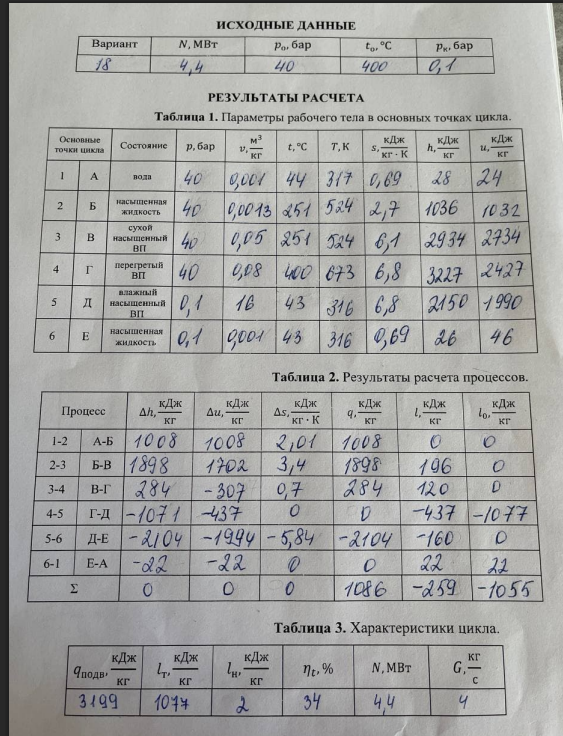 ИСХОДНЫЕ ДАННЫЕ
Вариант N, МВт p₀, бар t₀, °C pк, бар
18 4,4 40 400 0,1
РЕЗУЛЬТАТЫ РАСЧЕТА
Таблица 1. Параметры рабочего тела в основных точках цикла.
Основные точки цикла Состояние p, бар v, м³/кг t, °C T, К s, кДж/кг · К h, кДж/кг u, кДж/кг
1 А вода 40 0,001 44 317 0,69 28 24
2 Б насыщенная жидкость 40 0,0013 251 524 2,7 1036 1032
3 В сухой насыщенный ВП 40 0,05 251 524 6,1 2934 2734
4 Г перегретый ВП 40 0,08 400 673 6,8 3227 2427
5 Д влажный насыщенный ВП 0,1 16 43 316 6,8 2150 1990
6 Е насыщенная жидкость 0,1 0,001 43 316 0,69 26 46
Таблица 2. Результаты расчета процессов.
Процесс Δh, кДж/кг Δu, кДж/кг Δs, кДж/кг · К q, кДж/кг l, кДж/кг l₀, кДж/кг
1-2 А-Б 1008 1008 2,01 1008 0 0
2-3 Б-В 1898 1702 3,4 1898 196 0
3-4 В-Г 284 -307 0,7 284 120 0
4-5 Г-Д -1071 -437 0 0 -437 -1077
5-6 Д-Е -2104 -1994 -5,84 -2104 -160 0
6-1 Е-А -22 -22 0 0 22 22
Σ 0 0 0 1086 -259 -1055
Таблица 3. Характеристики цикла.
qподв, кДж/кг lт, кДж/кг lн, кДж/кг ηt, % N, МВт G, кг/с
3199 1077 2 34 4,4 4